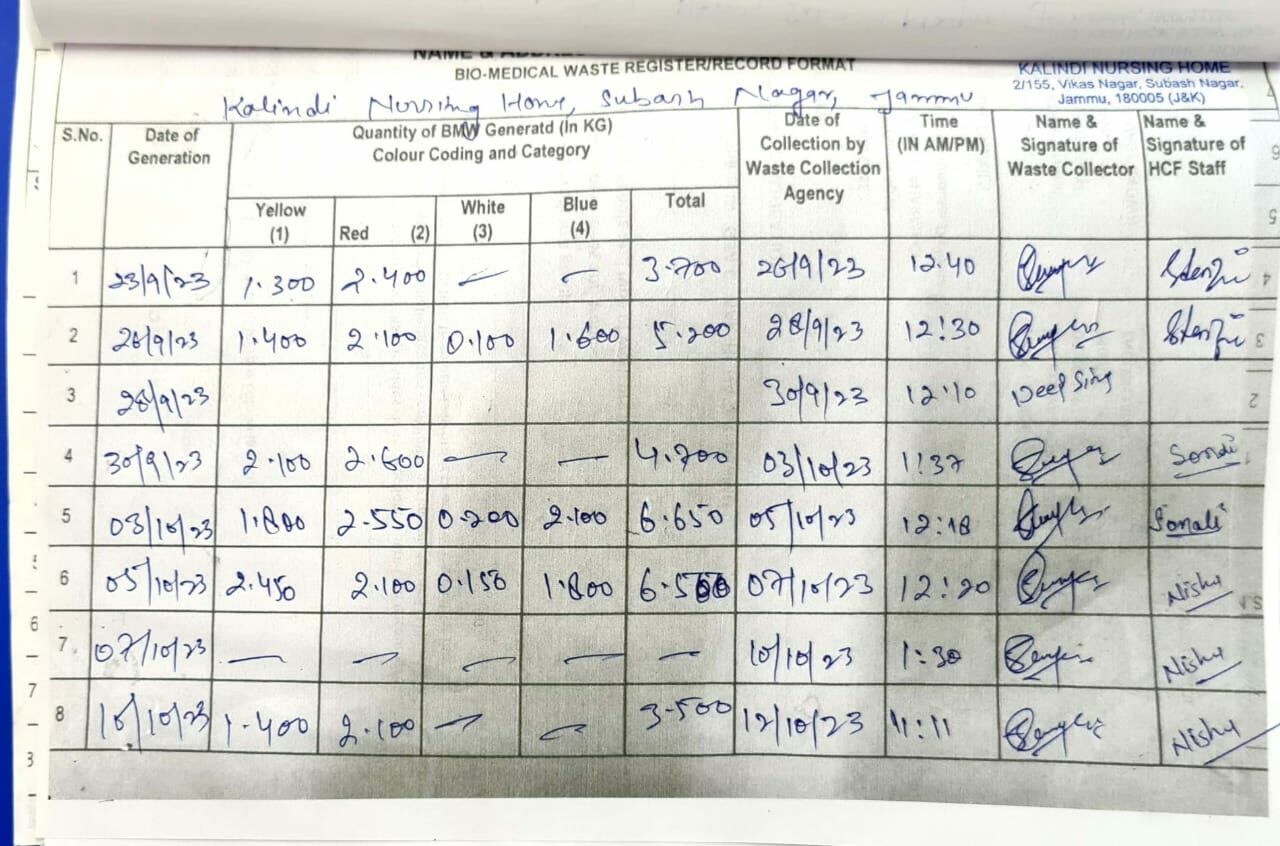 NAME & ADDRE
BIO-MEDICAL WASTE REGISTER/RECORD FORMAT
KALINDI NURSING HOME
2/155, Vikas Nagar, Subash Nagar,
Jammu, 180005 (J&K)
Kalindi Nursing Home, Subash Nagar, Jammu
S.No. Date of Generation Quantity of BMW Generatd (In KG) Colour Coding and Category Date of Collection by Waste Collection Agency Time (IN AM/PM) Name & Signature of Waste Collector Name & Signature of HCF Staff
Yellow (1) Red (2) White (3) Blue (4) Total
1 23/9/23 1.300 2.400 — — 3.700 26/9/23 12.40
2 26/9/23 1.400 2.100 0.100 1.600 5.200 28/9/23 12:30
3 28/9/23 30/9/23 12:10 Deep Sing
4 30/9/23 2.100 2.600 — — 4.700 03/10/23 1:37
5 03/10/23 1.800 2.550 0.200 2.100 6.650 05/10/23 12:18 Sonali
6 05/10/23 2.450 2.100 0.150 1.800 6.500 07/10/23 12:20 Nishu
7 07/10/23 — — — — — 10/10/23 1:30 Nishu
8 10/10/23 1.400 2.100 — — 3.500 12/10/23 11:11 Nishu